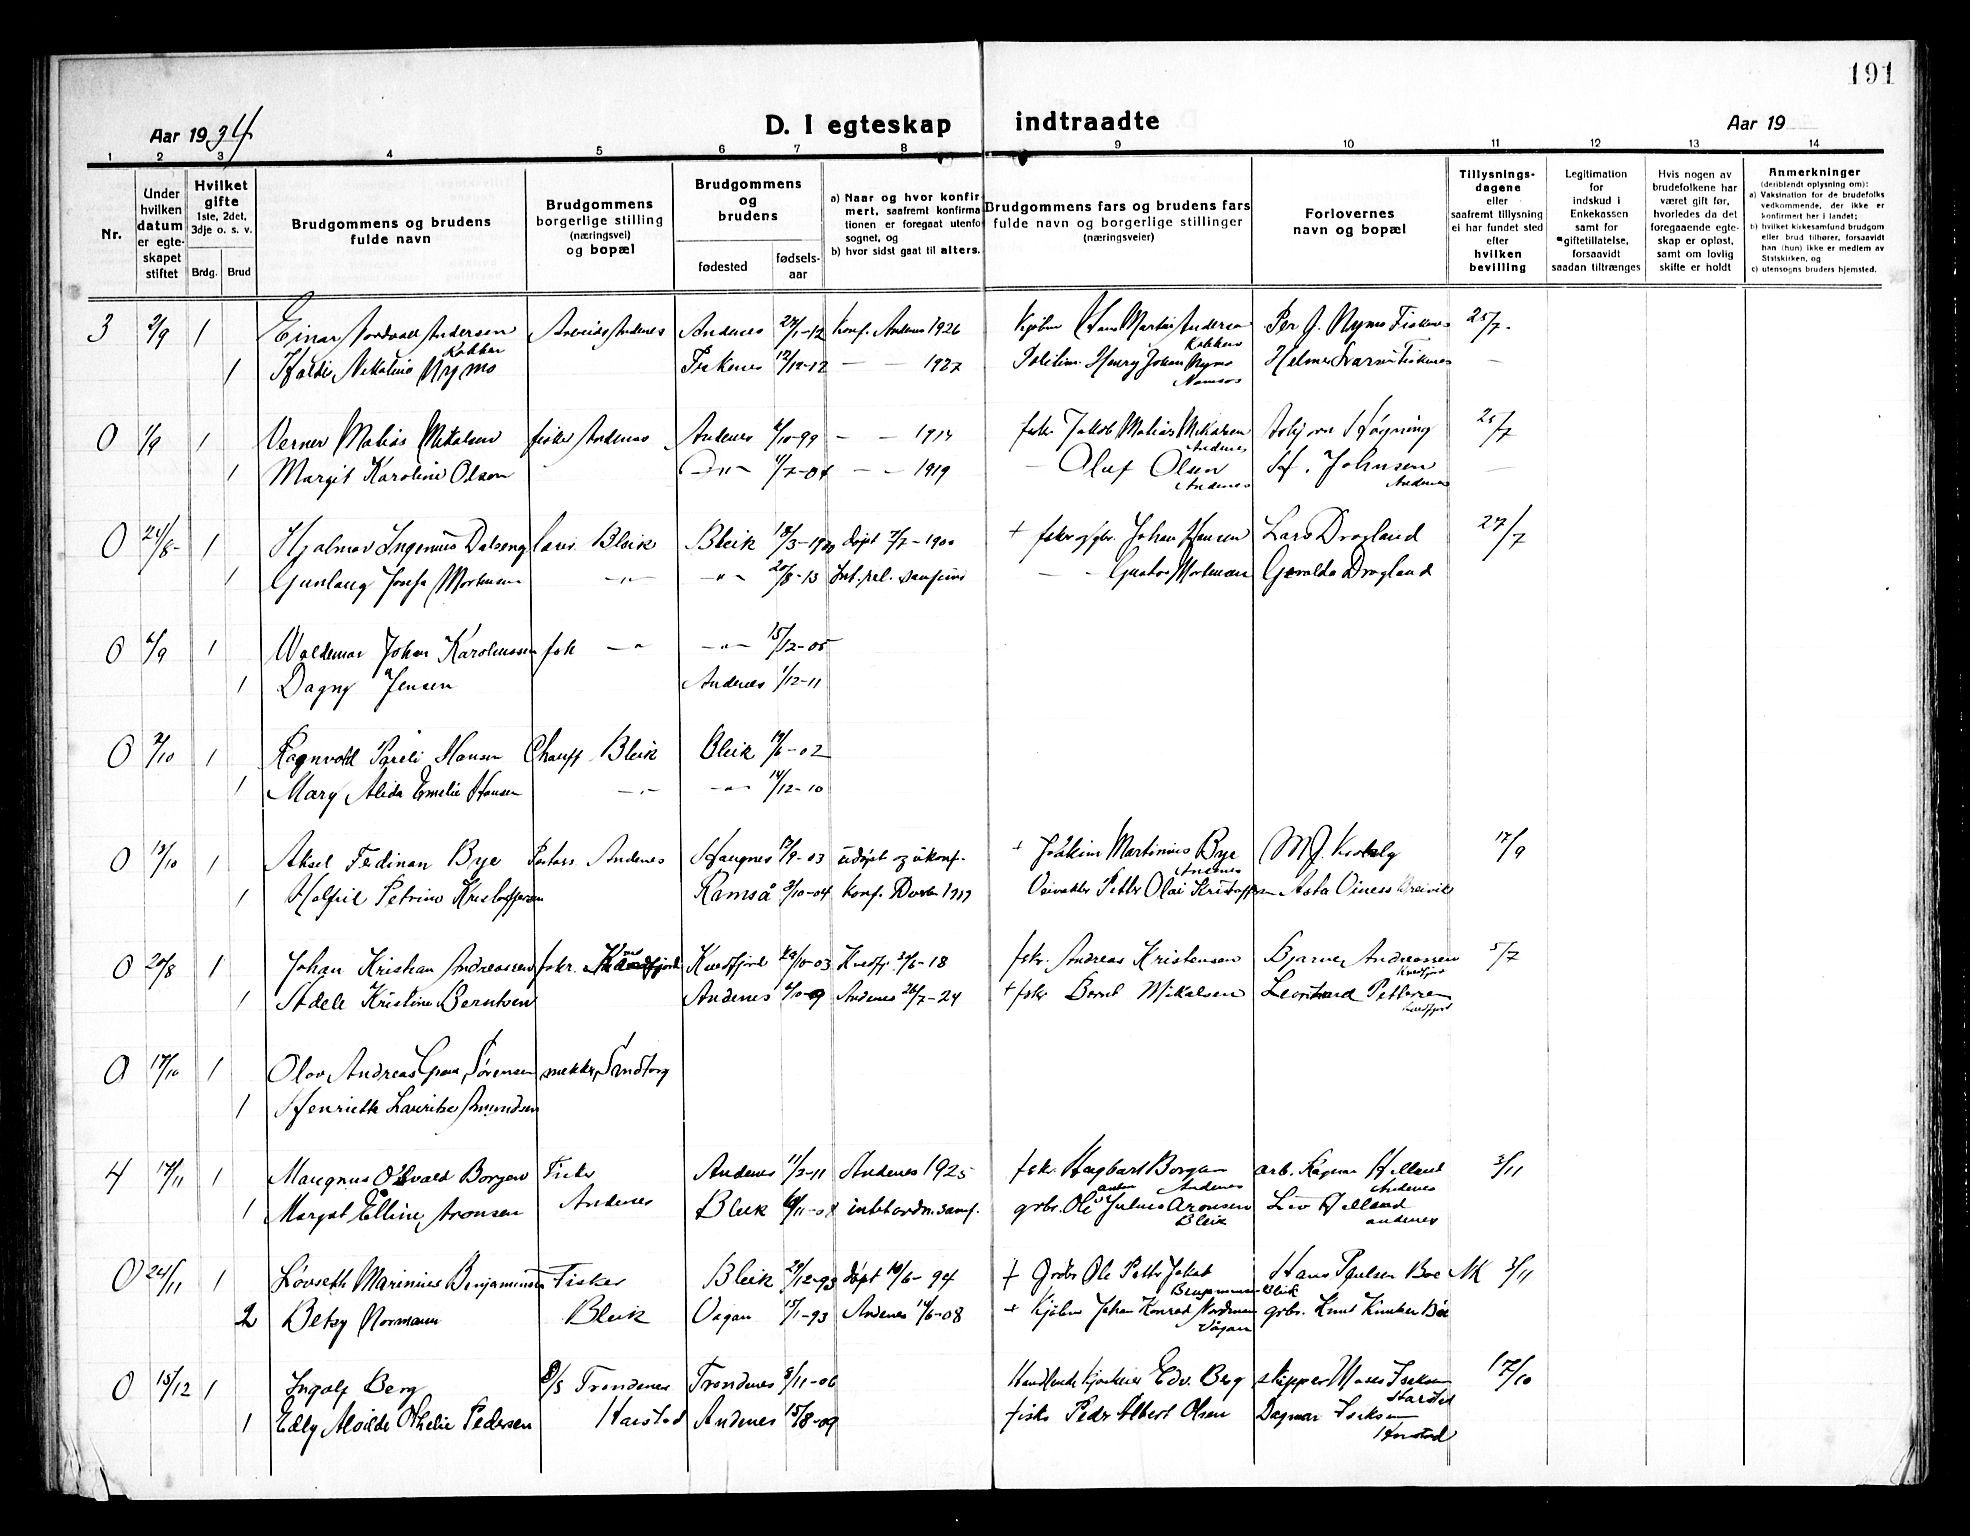 191
Aar 1934 D. I egteskap indtraadte Aar 19
1 2 3 4 5 6 7 8 9 10 11 12 13 14
Nr.
Under hvilken datum er egteskapet stiftet
Hvilket gifte 1ste, 2det, 3dje o. s. v.
Brdg. Brud
Brudgommens og brudens fulde navn
Brudgommens borgerlige stilling (næringsvei) og bopæl
Brudgommens og brudens
fødested
fødselsaar
a) Naar og hvor konfirmert, saafremt konfirmationen er foregaat utenfor sognet, og
b) hvor sidst gaat til alters.
Brudgommens fars og brudens fars fulde navn og borgerlige stillinger (næringsveier)
Forlovernes navn og bopæl
Tillysningsdagene eller saafremt tillysning ei har fundet sted efter hvilken bevilling
Legitimation for indskud i Enkekassen samt for giftetillatelse, forsaavidt saadan tiltrænges
Hvis nogen av brudefolkene har været gift før, hvorledes da det foregaaende egteskap er opløst, samt om lovlig skifte er holdt
Anmerkninger
(deriblendt oplysning om):
a) Vaksination for de brudefolks vedkommende, der ikke er konfirmert her i landet;
b) hvilket kirkesamfund brudgom eller brud tilhører, forsaavidt han (hun) ikke er medlem av Statskirken, og
c) utensogns bruders hjemsted.
3 2/9 1 Einar Nordvald Andersen Andenes Andenes 24/1-12 Konf. Andenes 1926 Hans Martin Andersen Per J. Nymo Fiskenes 25/7
Kokken Kokken
1 Nikoline Nymo Fiskenes 12/12-12 — — 1927 Henry Johan Nymo Helmer Fiskenes —
0 1/9 1 Verner Matias Mikalsen fisker Andenes Andenes 6/10-99 — — 1914 fskr Jakob Matias Mikalsen Asbjørn Høgning 25/7
Andenes
1 Margit Karoline Olsen —"— — — 1919 — Olaf Olsen H. Johnsen —
Andenes Andenes
0 1 Hjalmar Ingenius Dalseng Bleik Bleik 18/3-1900 døpt 7/7-1900 + Johan Hansen Lars Dragland 27/7
1 Gunlaug Mortensen —"— —"— 20/8-13 — — Gustav Mortensen Dragland
0 6/9 1 Waldemar Johan Karoliussen fsk —"— —"— 15/12-05
1 Dagny Jensen Andenes 1/12-11
0 2/10 1 Ragnvald Pareli Hansen Chauff Bleik Bleik 19/6-02
1 Mary Alida Emelie Hansen —"— —"— 14/12-10
0 13/10 1 Aksel Fedinan Bye Andenes Haugnes 17/9-03 udøpt og ukonf. + Joakim Martinius Bye 17/9
Andenes
1 Petrine Kristoffersen Ramså 3/10-04 Konf. Petter Olai Kristoffersen Asta Breivik
0 20/8 1 Johan Kristian Andreassen fskr. Kvedfjord Kvedfjord 29/10-03 Kvedfj 2/6-18 fskr. Andreas Kristensen Bjarne Andreassen 5/7
Kvedfjord
1 Adele Kristine Berntsen Andenes Andenes 26/7-24 + fskr Bernt Mikalsen Leonhard Pettersen
Kvedfjord
0 17/10 1 Olav Andreas Sørensen Sandtorg
1 Henriette Amundsen
4 17/11 1 Magnus Osvald Borgen Fisker Andenes 11/2-11 Andenes 1925 fskr. Hagbart Borgan arb. Ragnar Helland 3/11
Andenes Andenes Andenes
1 Margot Elline Aronsen Bleik grbr. Ole Julius Aronsen Liv Helland
Bleik andenes
0 24/11 1 Løvseth Marinius Benjaminsen Fisker Bleik 29/12-93 døpt 10/6-94 + Grdbr Ole Petter Jakob Hans Paulsen Boe 3/11
Benjaminsen Bleik
2 Betsy Normann Bleik Vågan 15/1-93 Andenes 14/6-08 + Johan Konrad Nordman grbr. Knut
Vågan
0 15/12 1 Ingolf Berg Trondenes Trondenes 8/11-06 Edv. Berg skipper 17/10
Harstad
1 Edly Alvilde Othelie Pedersen Harstad Andenes 15/8-09 fiskr Peder Albert Olsen Dagmar
Harstad